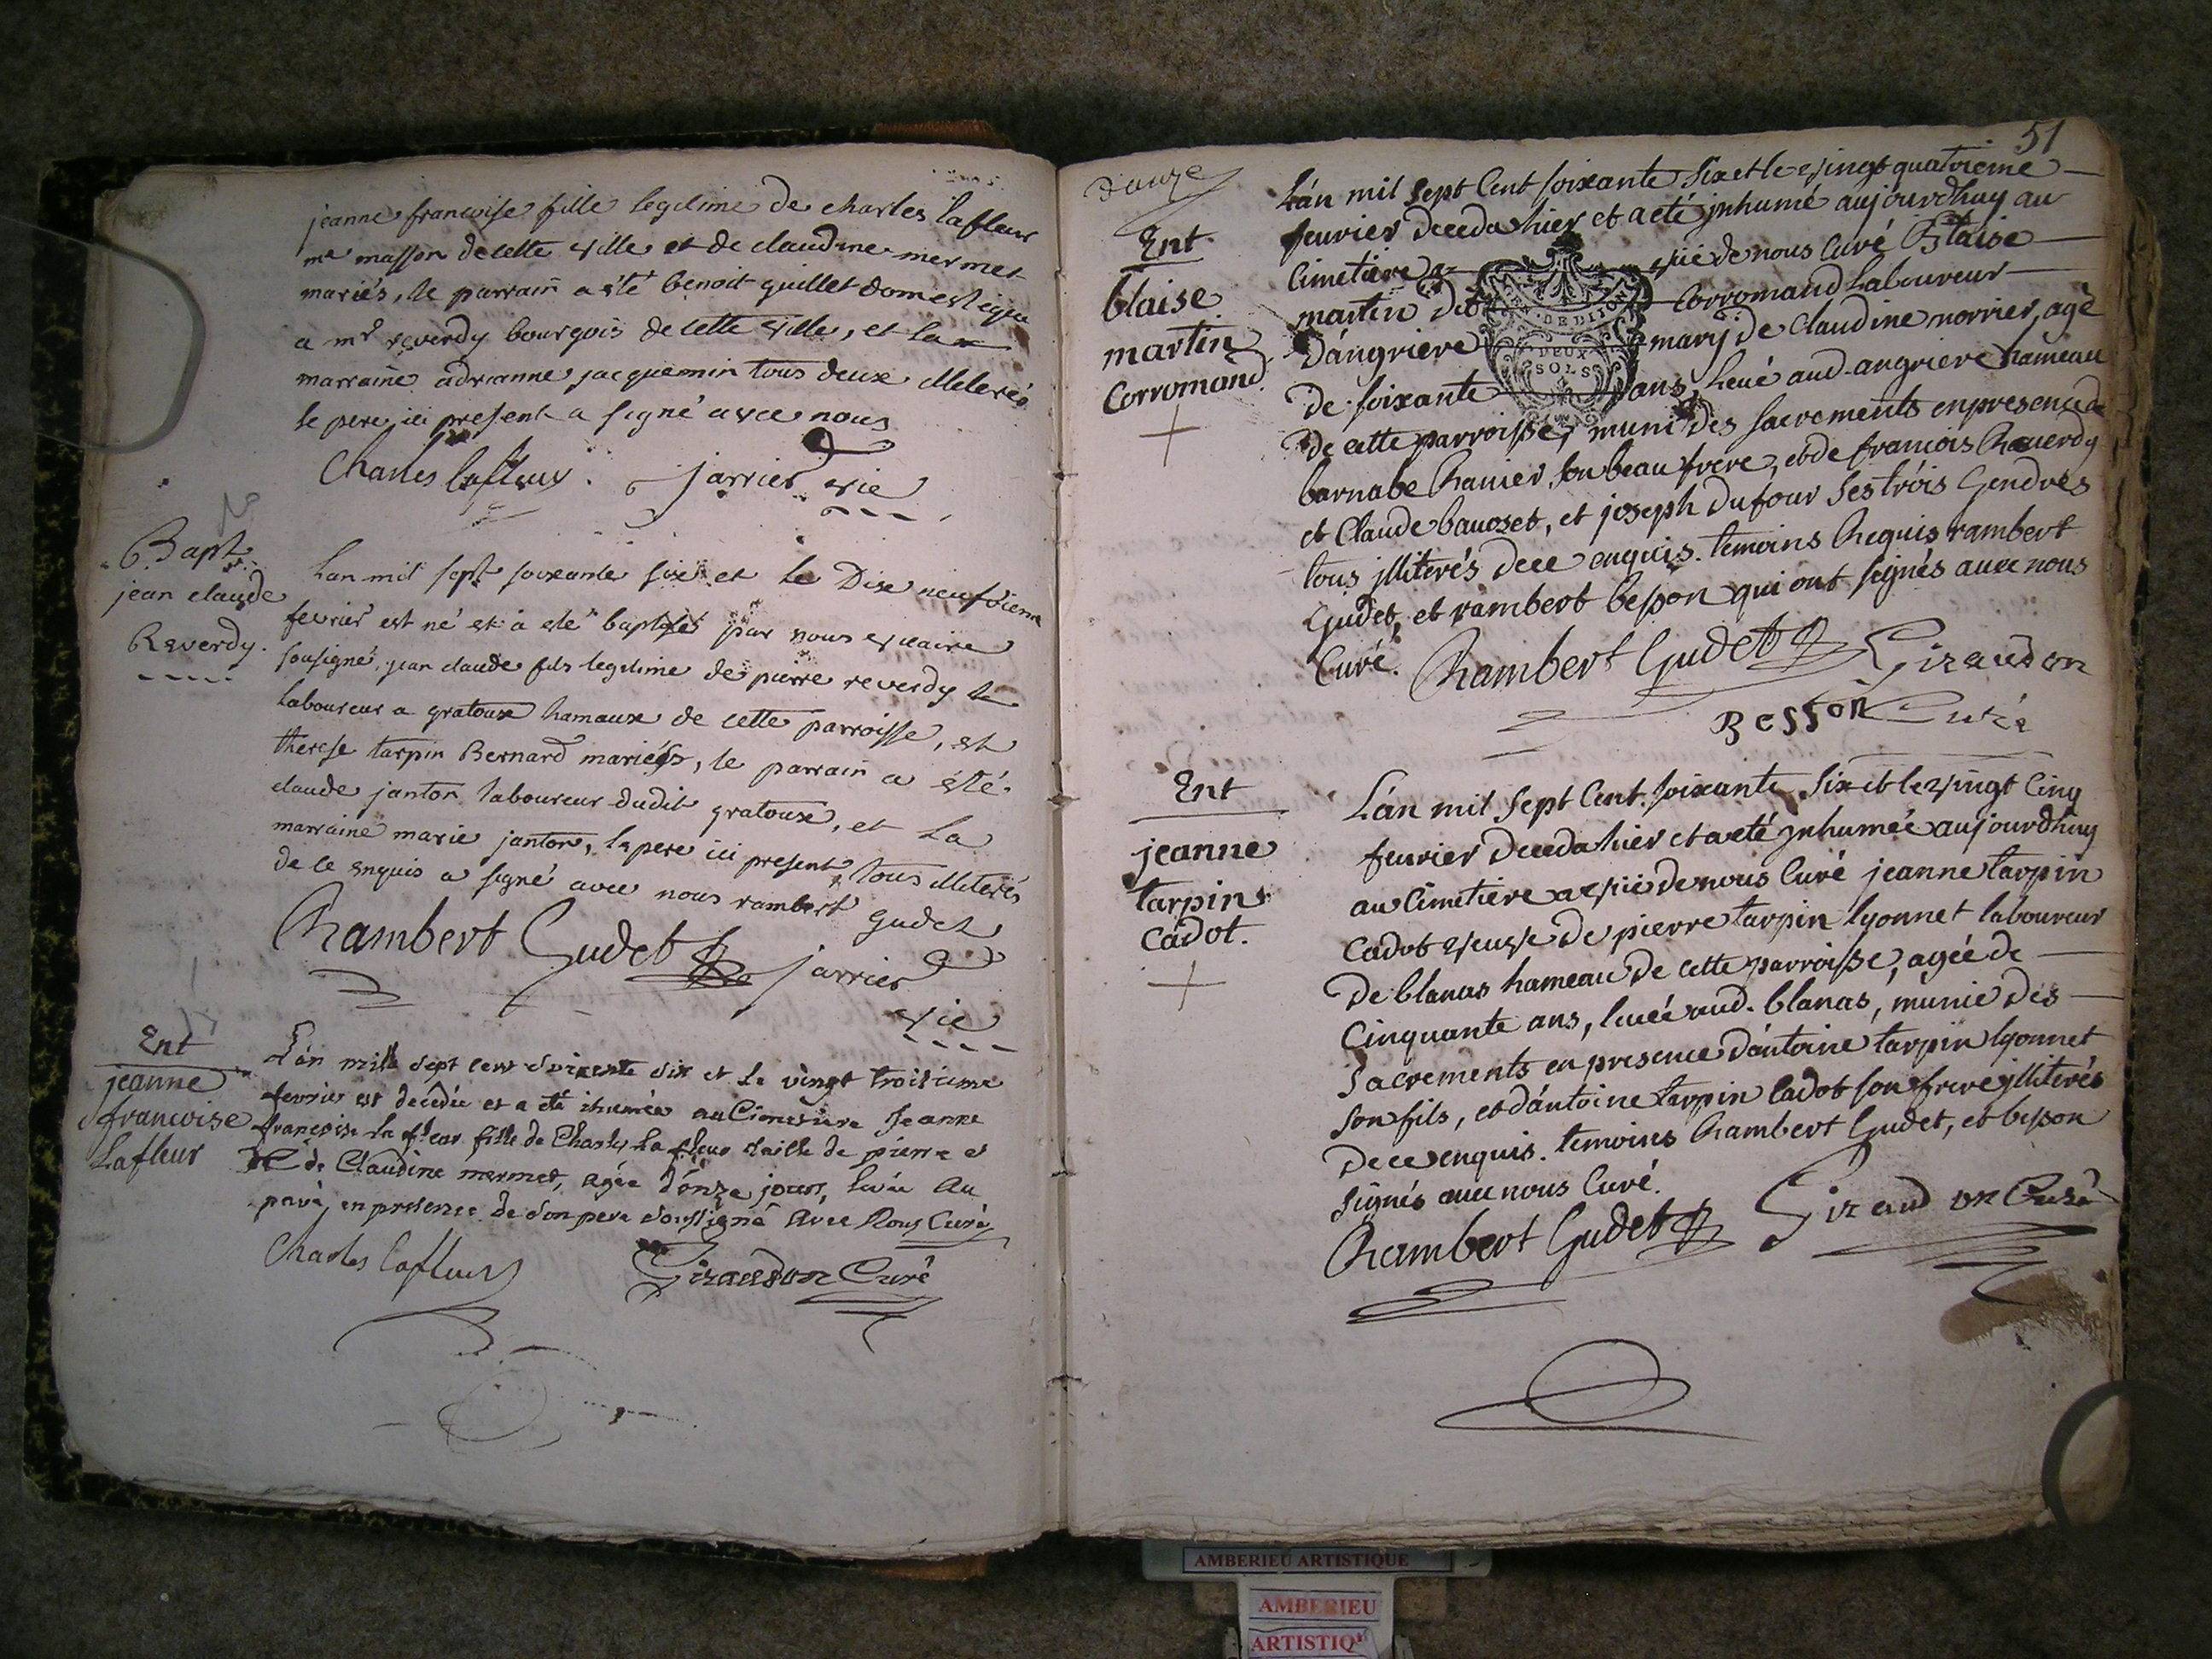 jeanne francoise fille legitime de charles lafleur
me masson de cette ville et de claudine mermet
mariés, le parrain a été benoit guillet domestique
a mr reverdy bourgois de cette ville, et la
marraine adrianne jacquemin tous deux illiterés
le pere ici present a signé avec nous
Charles lafleur. jarrier vic
Bapt.
jean claude
Reverdy.
Lan mil sept soixante six et le Dix neufvieme
fevrier est né et a été baptisé par nous vicaire
sousigné, jean claude fils legitime de pierre reverdy
laboureur a gratoux hamaux de cette parroisse, et
therese tarpin Bernard mariés, le parrain a été
claude janton laboureur dudit gratoux, et La
marraine marie janton, le pere ici present, tous illiterés
de ce enquis a signé avec nous rambert gudet
Rambert Gudet jarrier
vic
Ent
jeanne
francoise
Lafleur
L'an mille sept cent soixante six et le vingt troisieme
fevrier est decédée et a eté ihumée au Cimetiere Jeanne
françoise la fleur fille de Charles La fleur taille de pierre et
de Claudine mermet, agée d'onze jours, levée Au
pavé, en presence de son pere soussigné Avec Nous Curé
Charles lafleur Giraudon Curé
51
douze
Ent
blaise
martin
Corromand
L'an mil sept Cent soixante six et le vingt quatrieme
feurier deceda hier et a eté jnhumé aujourdhuy au
Cimetiere a vié de nous Curé Blaise
martin dit Corromand Laboureur
D'angriere mary de Claudine norrier, agé
de soixante ans, leué aud. angriere hameau
de cette parroisse, muni des sacrements en presence de
barnabe Rauier son beau frere, et de francois Reuerdy
et Claude bauoset, et joseph Dufour ses tróis Gendres
tous jlliterés de ce enquis. temoins Requis rambert
Gudet, et rambert besson qui ont signés auec nous
Curé. Rambert Gudet Giraudon
Besson Curé
GEN. DE DIJON
DEUX
SOLS
Ent
jeanne
tarpin
cadot.
L'an mil sept Cent soixante six et le vingt Cinq
feurier deceda hier et a eté jnhumée aujourdhuy
au Cimetiere a vié de nous Curé jeanne tarpin
Cadot veuve de pierre tarpin lyonnet laboureur
de blanas hameau de cette parroisse, agée de
Cinquante ans, leuée aud. blanas, munie des
Sacrements en presence d'antoine tarpin lyonnet
son fils, et d'antoine tarpin Cadot son frere jlliterés
de ce enquis. temoins Rambert Gudet, et besson
signés auec nous Curé.
Rambert Gudet Giraudon Curé
AMBERIEU ARTISTIQUE
AMBERIEU
ARTISTIQ